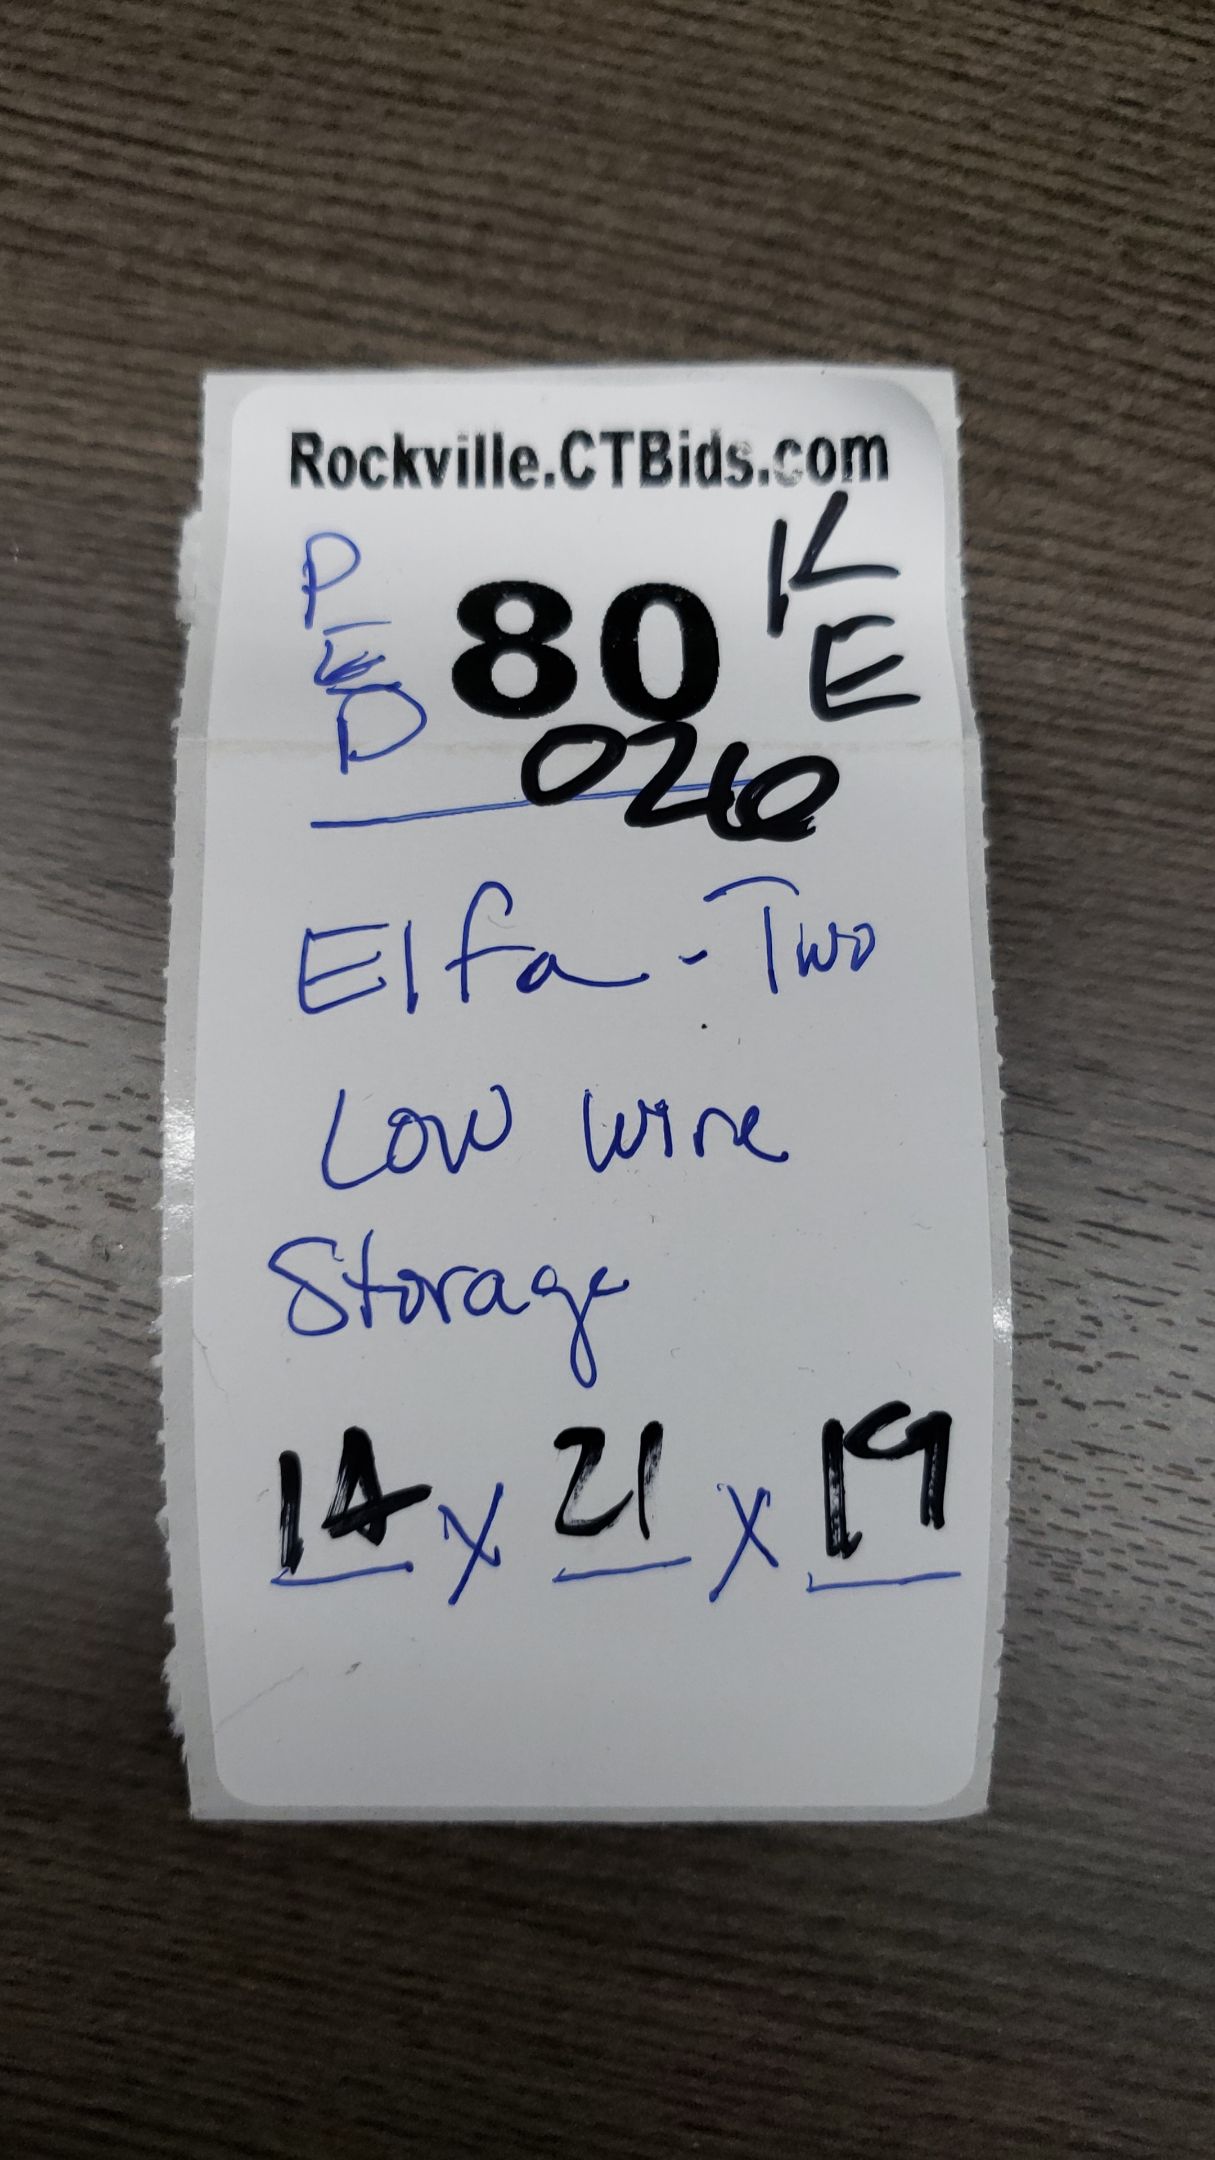 Rockville.CTBids.com
PED
80
KE
026
Elfa - Two
Low wire
Storage
14 x 21 x 19